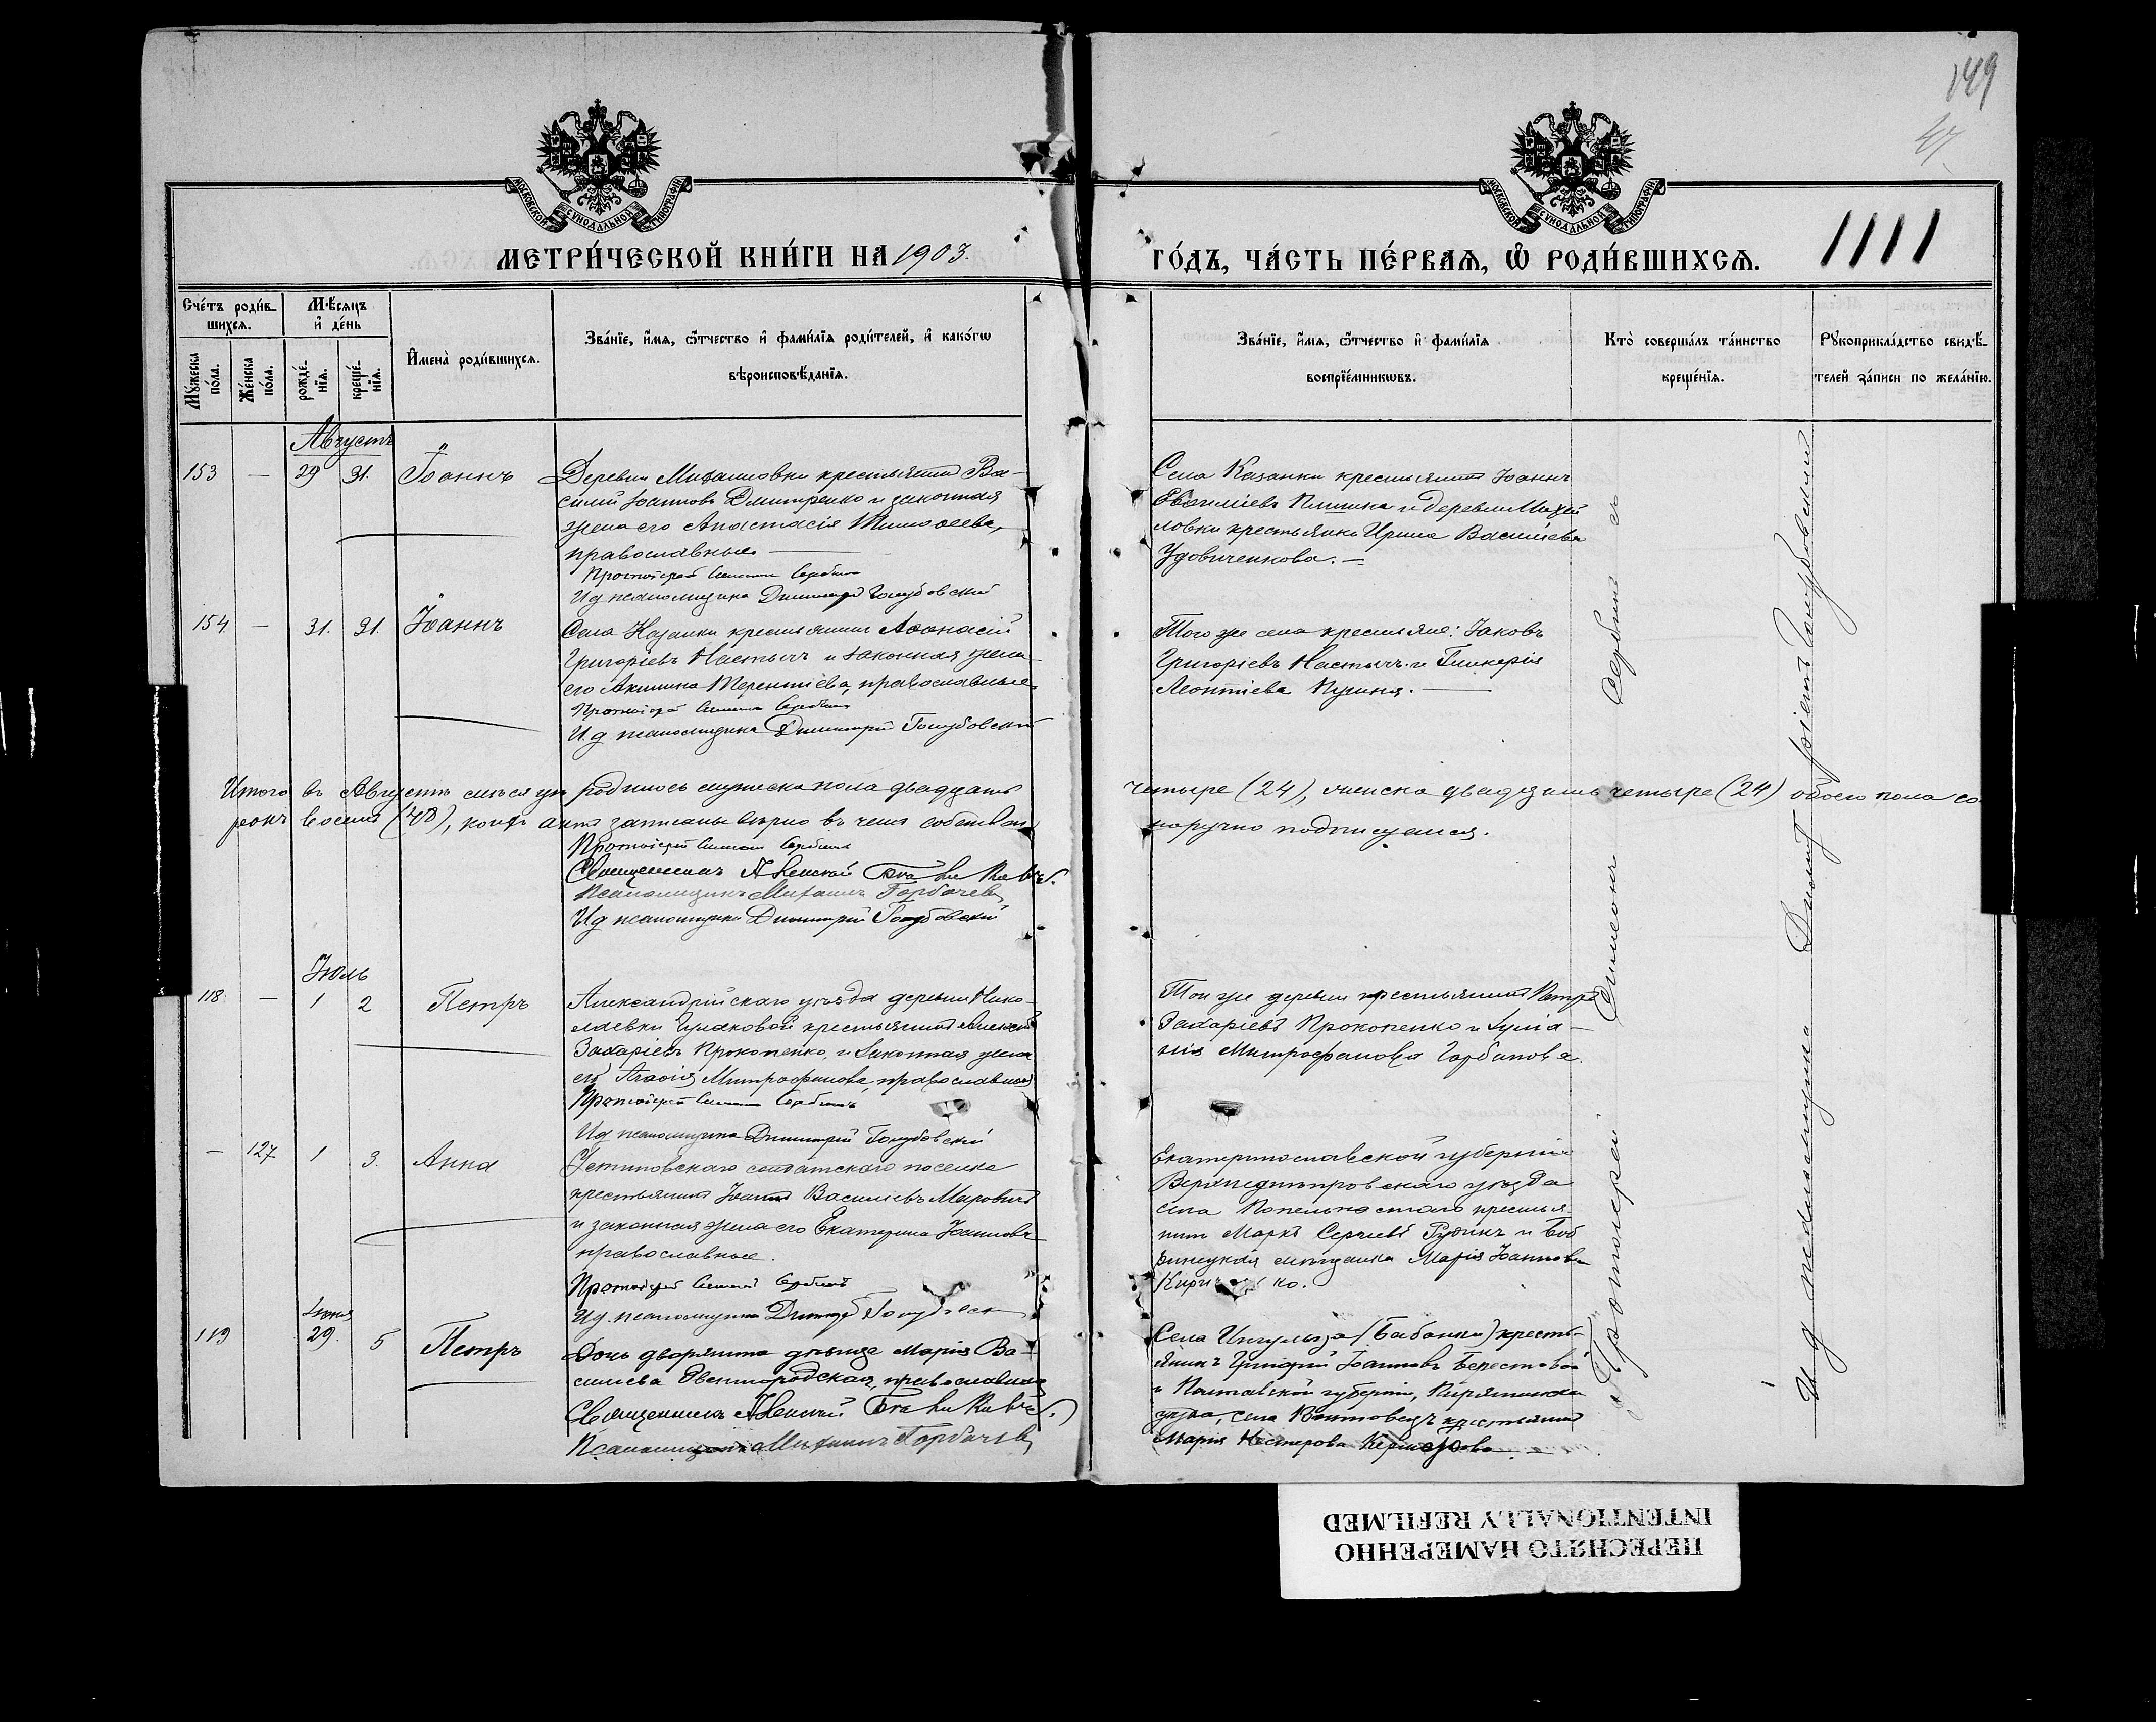 149
47
МОСКОВСКОЙ СѴНОДАЛЬНОЙ ТИПОГРАФІИ
МОСКОВСКОЙ СѴНОДАЛЬНОЙ ТИПОГРАФІИ
МЕТРИ́ЧЕСКОЙ КНИ́ГИ НА 1903.
ГО́ДЪ, ЧА́СТЬ ПЕ́РВАѦ, Ѡ РОДИ́ВШИХСѦ. 1111
Сче́тъ роди́в-
шихсѧ.
Мꙋ́жеска по́ла.
Же́нска по́ла.
Мѣ́сѧцъ
и҆ де́нь
рожде́-
нїѧ.
креще́-
нїѧ.
И҆мена̀ роди́вшихсѧ.
Зва́нїе, и҆́мѧ, ѻ҆́тчество и҆ фами́лїѧ роди́телей, и҆ како́гѡ
вѣроисповѣ́данїѧ.
Зва́нїе, и҆́мѧ, ѻ҆́тчество и҆ фами́лїѧ
воспрїе́мникѡвъ.
Кто̀ соверша́лъ та́инство
креще́нїѧ.
Рꙋкоприкла́дство свидѣ́-
телей за́писи по жела́нїю.
Августъ
153 — 29 31. Іоаннъ
Деревни Михайловки крестьянинъ Ва-
силій Іоанновъ Дмитренко и законная
жена его Анастасія Тимофеева,
православные
Протоіерей Симеонъ Сербинъ
И д псаломщика Димитрій Голубовскій
Села Казанки крестьянинъ Іоаннъ
и деревни Михай
ловки крестьянка Ирина Васильева
Удовиченкова. —
154. — 31. 31. Іоаннъ
Села Казанки крестьянинъ Аѳанасій
Григоріевъ Настычъ и законная жена
его Акилина Терентіева, православные.
Протоіерей Симеонъ Сербинъ
И. д псаломщика Димитрій Голубовскій
Того же села крестьяне: Іаковъ
Григоріевъ Настычъ и Гликерія
Леонтіева
Итого въ Августѣ мѣсяцѣ родилось мужеска пола двадцать
четыре (24), женска двадцать четыре (24) обоего пола со-
рокъ восемь (48), записаны вѣрно въ чемъ собствен
норучно подписуемся.
Протоіерей Симеонъ Сербинъ
Священникъ
Псаломщикъ Михаилъ Горбачевъ
И д псаломщика Димитрій Голубовскій
Іюль
118. — 1 2 Петръ
Александрійскаго уѣзда деревни Нико-
лаевки крестьянинъ Алексѣй
Захаріевъ Прокопенко, и законная жена
его Агаѳія Митрофанова, православные
Протоіерей Симеонъ Сербинъ
И д псаломщика Димитрій Голубовскій
Той же деревни крестьянинъ Петръ
Захаріевъ Прокопенко и Іуліа-
нія Митрофанова Горбанова.
— 127 1 3. Анна
Устиновскаго солдатскаго поселка
крестьянинъ Іоаннъ Васильевъ Мировичъ
и законная жена его Екатерина Іоаннова
православные.
Протоіерей Симеонъ Сербинъ
И д. псаломщика Димитр
Екатеринославской губерніи
Верхнеднѣпровскаго уѣзда
села крестья-
нинъ Маркъ Сергіевъ и Боб
ринецкая мѣщанка Марія Іоаннова
119 Іюня 29. 5 Петръ
Дочь дворянина дѣвица Марія Ва-
сильева Звенигородская, православная
Священникъ
Псаломщикъ Михаилъ Горбачевъ
Села Ингульца (Бабанки) кресть-
янинъ Григорій Іоанновъ Берестовой
и Полтавской губерніи, Пирятинскаго
уѣзда, села крестьянка
Марія Нестерова
Протоіерей Симеонъ Сербинъ
И д псаломщика Димитрій Голубовскій
ПЕРЕСНЯТО НАМЕРЕННО
INTENTIONALLY REFILMED